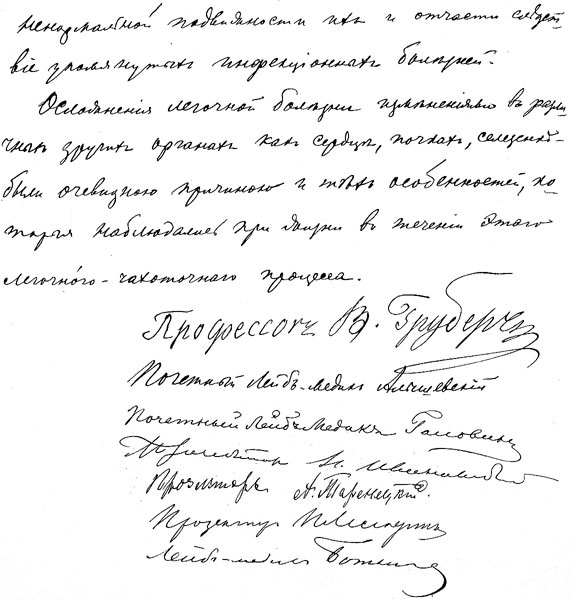 ненормальной подвижности ихъ и отчасти слѣдст-
віе упомянутыхъ инфекціонныхъ болѣзней.
Осложненія легочной болѣзни измѣненіями въ разли-
чныхъ другихъ органахъ какъ сердцѣ, почкахъ, селезенкѣ-
были очевидною причиною и тѣхъ особенностей, ко-
торыя наблюдались при жизни въ теченіи этаго
легочного-чахоточнаго процесса.
Профессоръ В. Груберъ
Почетный Лейбъ-Медикъ Алышевскій
Почетный ЛейбъМедикъ Головинъ
Прозекторъ Н. Ивановскій
Прозекторъ А. Таренецкій.
Прозекторъ П. Лесгафтъ
Лейбъ-медикъ Боткинъ